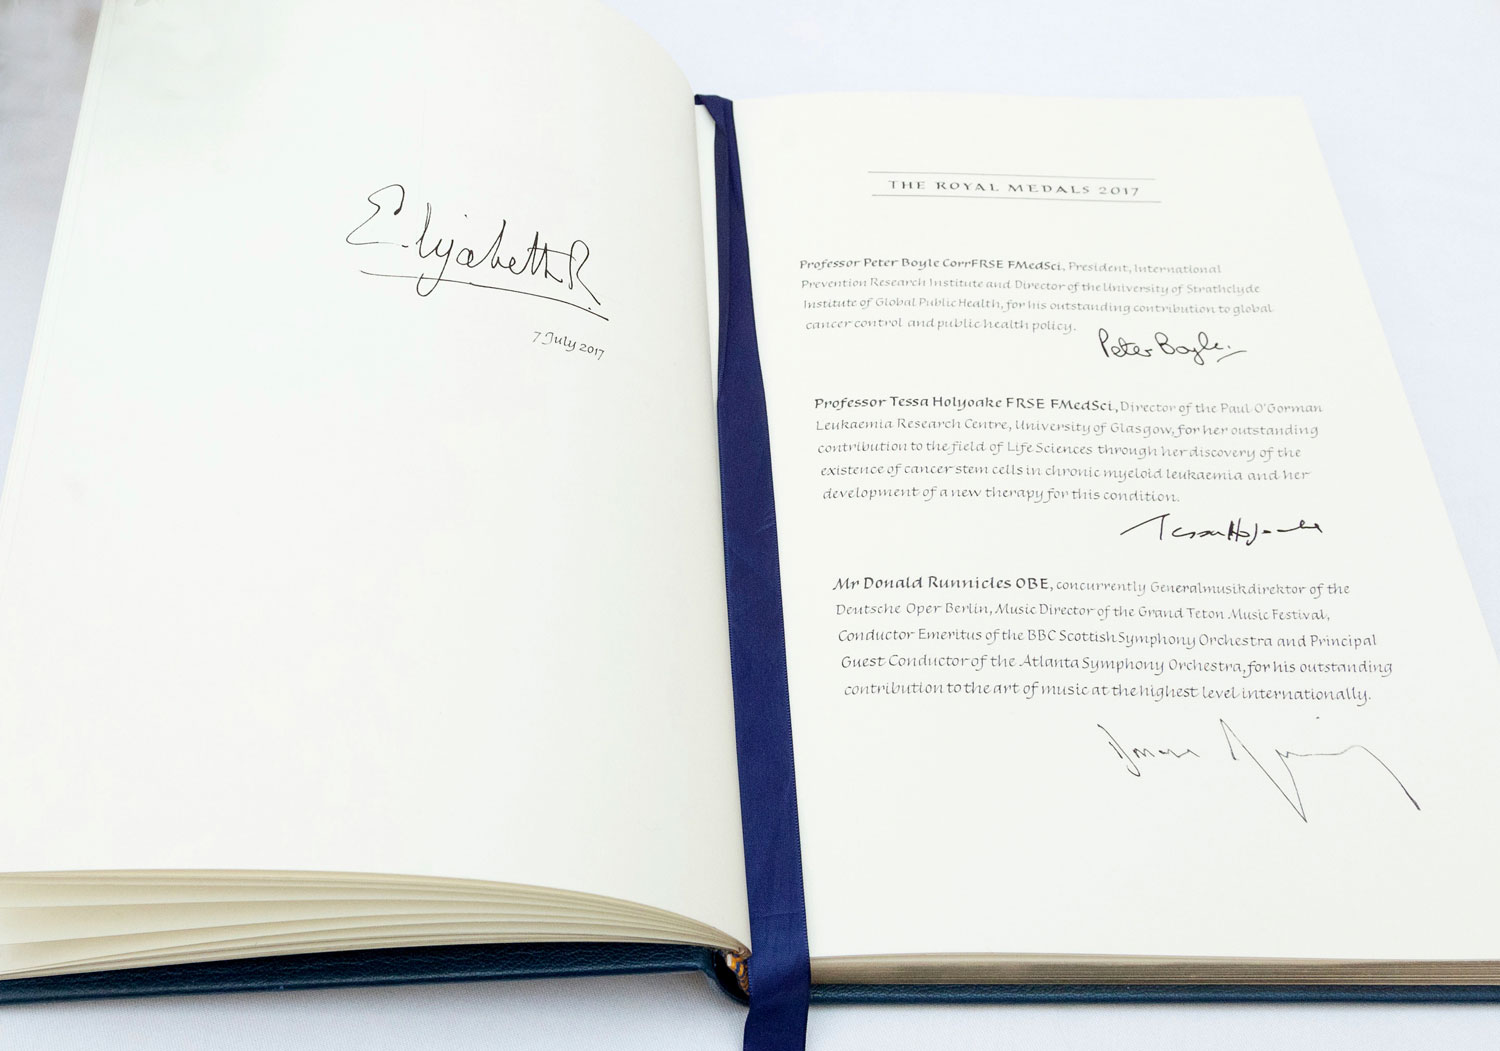 Elizabeth R
7 July 2017
THE ROYAL MEDALS 2017
Professor Peter Boyle CorrFRSE FMedSci, President, International
Prevention Research Institute and Director of the University of Strathclyde
Institute of Global Public Health, for his outstanding contribution to global
cancer control and public health policy.
Peter Boyle.
Professor Tessa Holyoake FRSE FMedSci, Director of the Paul O'Gorman
Leukaemia Research Centre, University of Glasgow, for her outstanding
contribution to the field of Life Sciences through her discovery of the
existence of cancer stem cells in chronic myeloid leukaemia and her
development of a new therapy for this condition.
Tessa Holyoake
Mr Donald Runnicles OBE, concurrently Generalmusikdirektor of the
Deutsche Oper Berlin, Music Director of the Grand Teton Music Festival,
Conductor Emeritus of the BBC Scottish Symphony Orchestra and Principal
Guest Conductor of the Atlanta Symphony Orchestra, for his outstanding
contribution to the art of music at the highest level internationally.